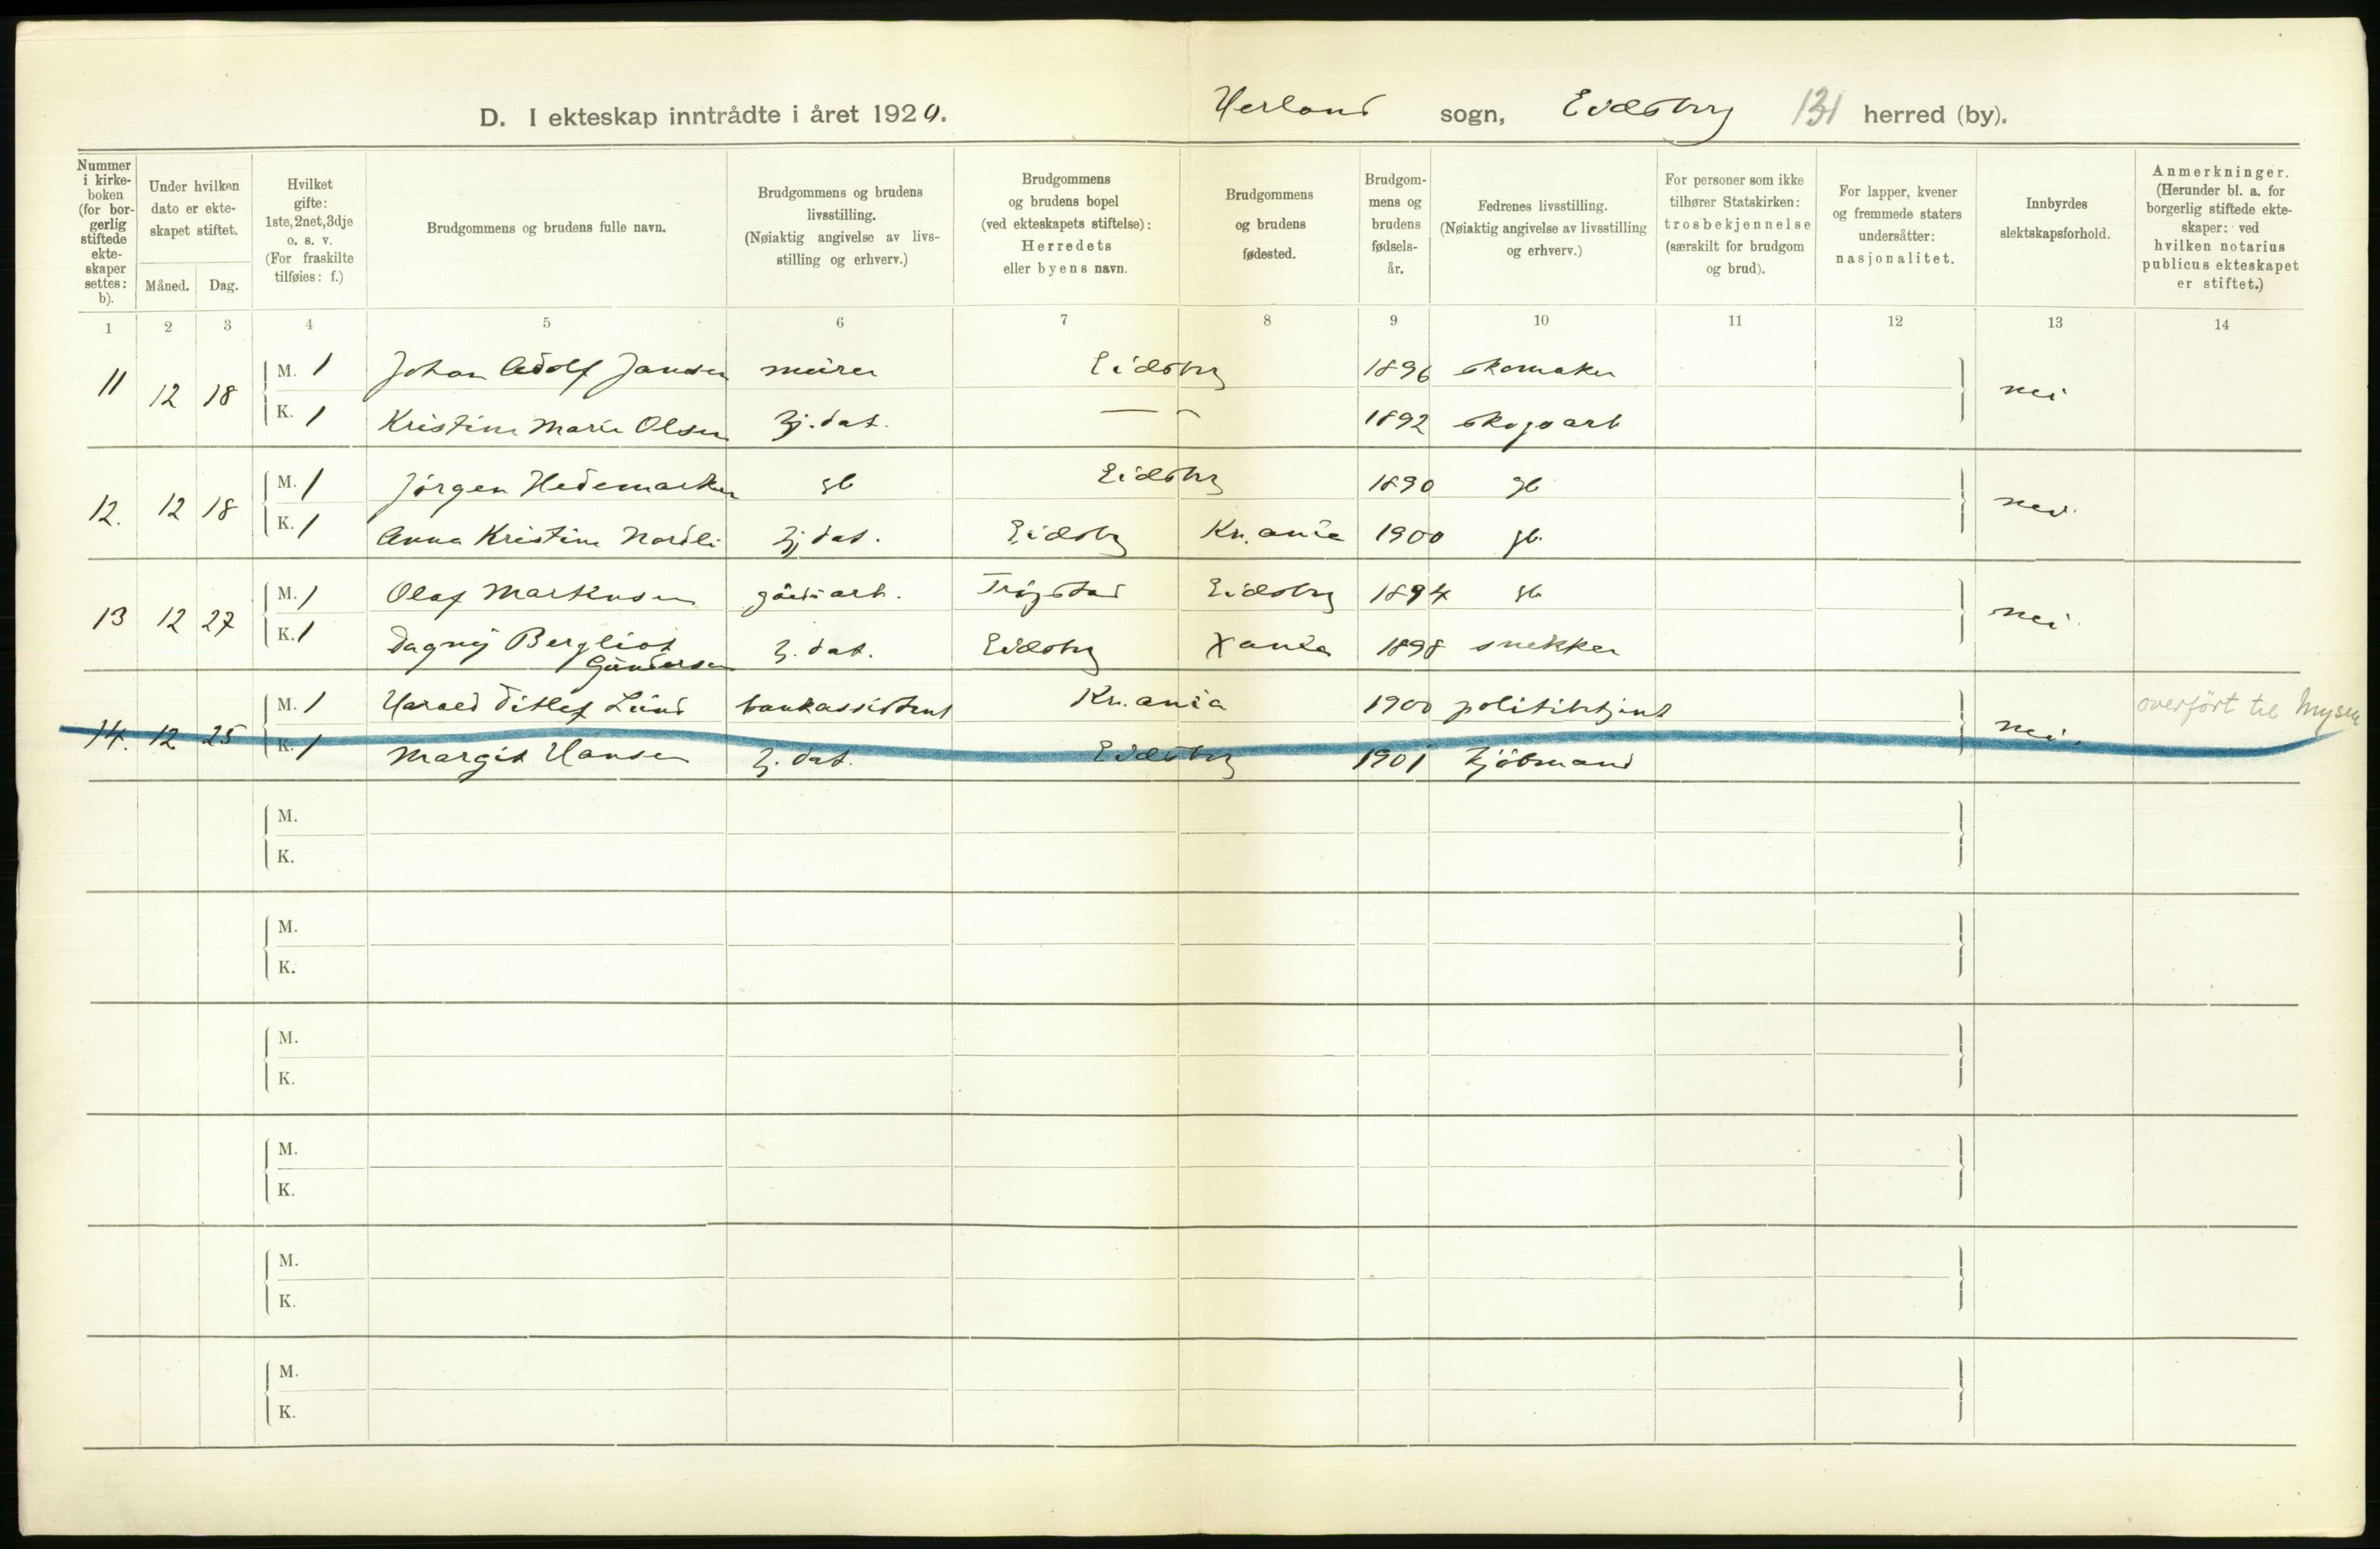 D. I ekteskap inntrådte i året 1920. Herland sogn, Eidsberg 131 herred (by).
Nummer i kirkeboken (for borgerlig stiftede ekteskaper settes: b).
Under hvilken dato er ekteskapet stiftet.
Måned. Dag.
Hvilket gifte: 1ste, 2net, 3dje o. s. v. (For fraskilte tilføies: f.)
Brudgommens og brudens fulle navn.
Brudgommens og brudens livsstilling. (Nøiaktig angivelse av livsstilling og erhverv.)
Brudgommens og brudens bopel (ved ekteskapets stiftelse): Herredets eller byens navn.
Brudgommens og brudens fødested.
Brudgommens og brudens fødselsår.
Fedrenes livsstilling. (Nøiaktig angivelse av livsstilling og erhverv.)
For personer som ikke tilhører Statskirken: trosbekjennelse (særskilt for brudgom og brud).
For lapper, kvener og fremmede staters undersåtter: nasjonalitet.
Innbyrdes slektskapsforhold.
Anmerkninger. (Herunder bl. a. for borgerlig stiftede ekteskaper: ved hvilken notarius publicus ekteskapet er stiftet.)
1 2 3 4 5 6 7 8 9 10 11 12 13 14
11 12 18 M. 1 Johan Adolf Jansen murer Eidsberg 1896 skomaker nei
K. 1 Kristine Marie Olsen Hj. dat. — " 1892 skogsarb
12. 12 18 M. 1 Jörgen Hedemarken gb Eidsberg 1890 gb nei.
K. 1 Anna Kristine Nordli Hj dat. Eidsberg Kr.ania 1900 gb.
13 12 27 M. 1 Olaf Markusen gårdsarb. Trögstad Eidsberg 1894 gb nei.
K. 1 Dagny Bergliot Gundersen H. dat. Eidsberg Xania 1898 snekker
14. 12 25 M. 1 Harald Ditlef Lund bankassistent Kr.ania 1900 politibtjent nei. overfört til Mysen
K. 1 Margit Hansen H. dat. Eidsberg 1901 kjöbmand
M.
K.
M.
K.
M.
K.
M.
K.
M.
K.
M.
K.